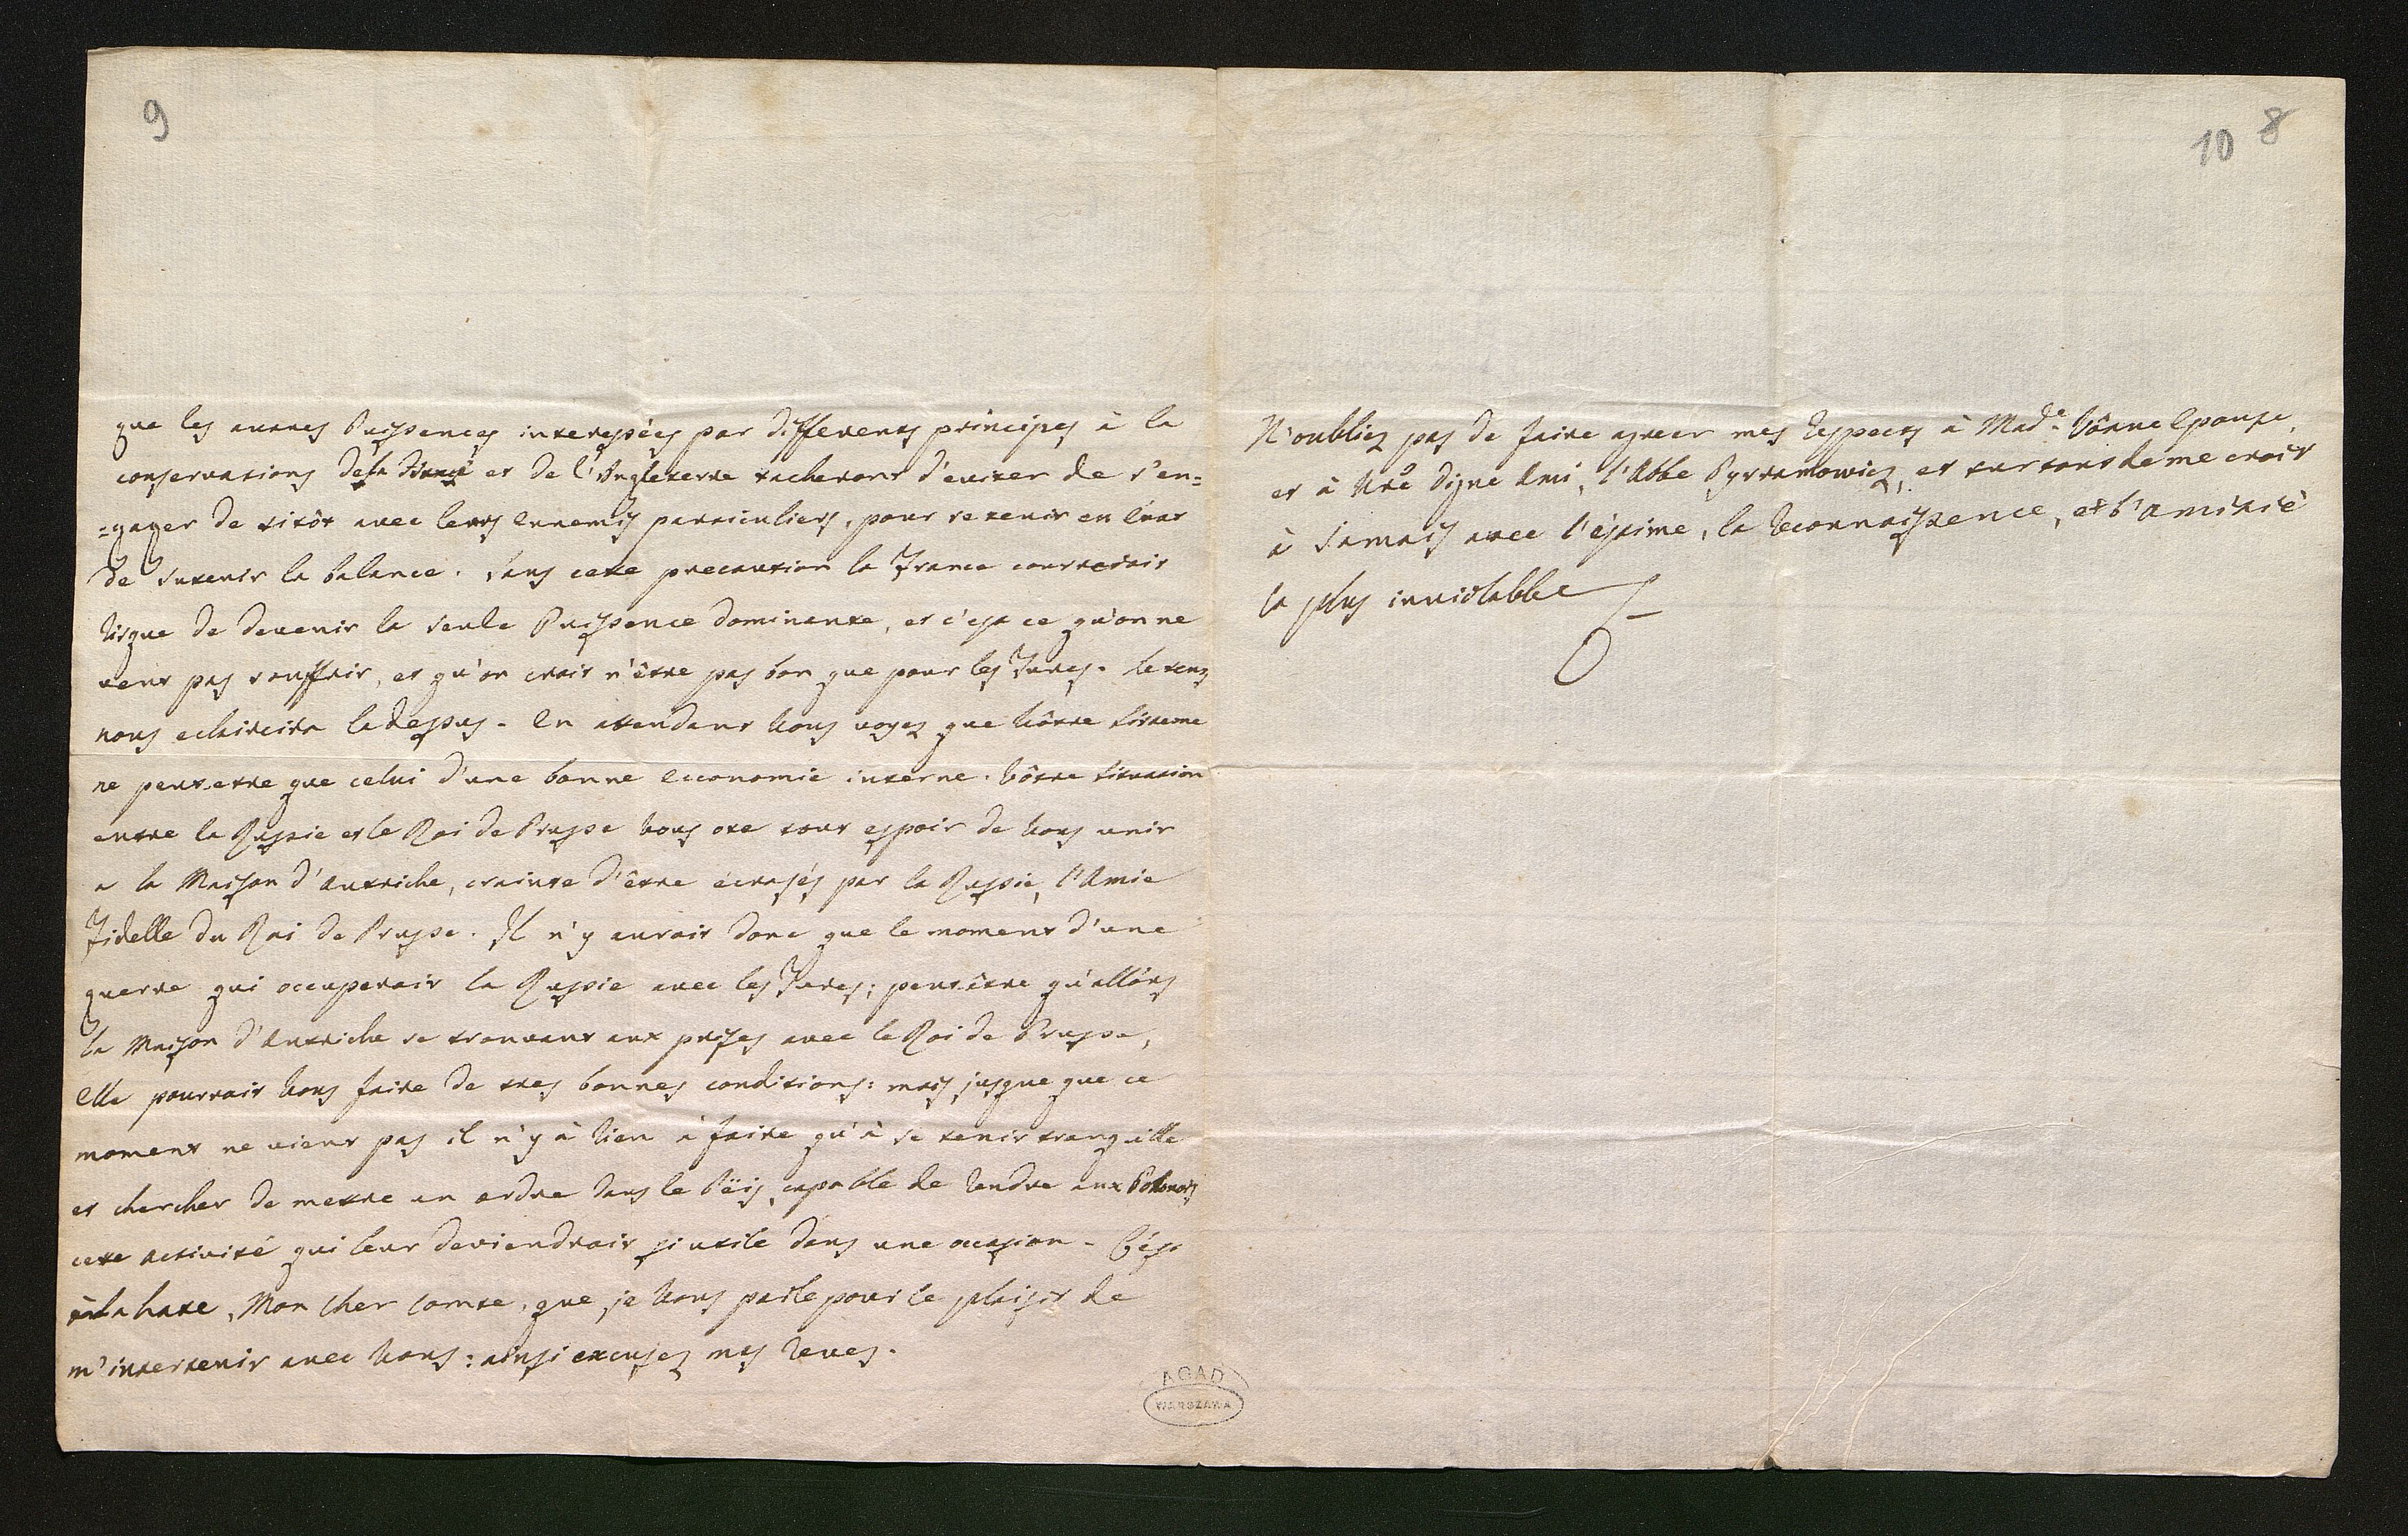 9
que les autres Puissences interessées par differents principes à la
conservations de la et de l'Angleterre tacheront d'eviter de s'en=
=gager de sitôt avec leurs ennemis particuliers, pour se tenir en état
de sutenir la balance. Sans cete precaution la France courreroit
risque de devenir la seule Puissence dominente, et c'est ce qu'on ne
veut pas souffrir, et qu'on croit n'être pas bon que pour les Turcs. Le tems
nous eclaircira la dessus. En attendant Vous voyez que Vôtre sisteme
ne peut etre que celui d'une bonne economie interne. Vôtre situation
entre la Russie et le Roi de Prusse Vous ote tout espoir de Vous unir
a la Maison d'Autriche, crainte d'être écrasés par la Russie, l'Amie
Fidelle du Roi de Prusse. Il n'y auroit donc que le moment d'une
guerre qui occuperoit la Russie avec les Turcs; peut-être qu'allors
la Maison d'Autriche se trouvant aux prises avec le Roi de Prusse,
elle pourroit Vous faire de tres bonnes conditions: mais jusque que ce
moment ne vient pas il n'y à rien à faire qu'à se tenir tranquille
et chercher de mettre un ordre dans le Päis, capable de rendre aux Polonois
cete activité qui leur deviendroit si utile dans une occasion. C'ést
à la hate, Mon cher Comte, que je Vous parle pour le plaisir de
m'intertenir avec Vous: ainsi excusez mes reves.
10 8
N'oubliez pas de faire agreer mes respects à Made. Vôtre Epouse,
et à Ntre digne Ami, l'Abbe Pyrramowicz, et sur tout de me croir
à jamais avec l'éstime, la reconnoissence, et l'amitié
la plus inviolabble
AGAD
WARSZAWA